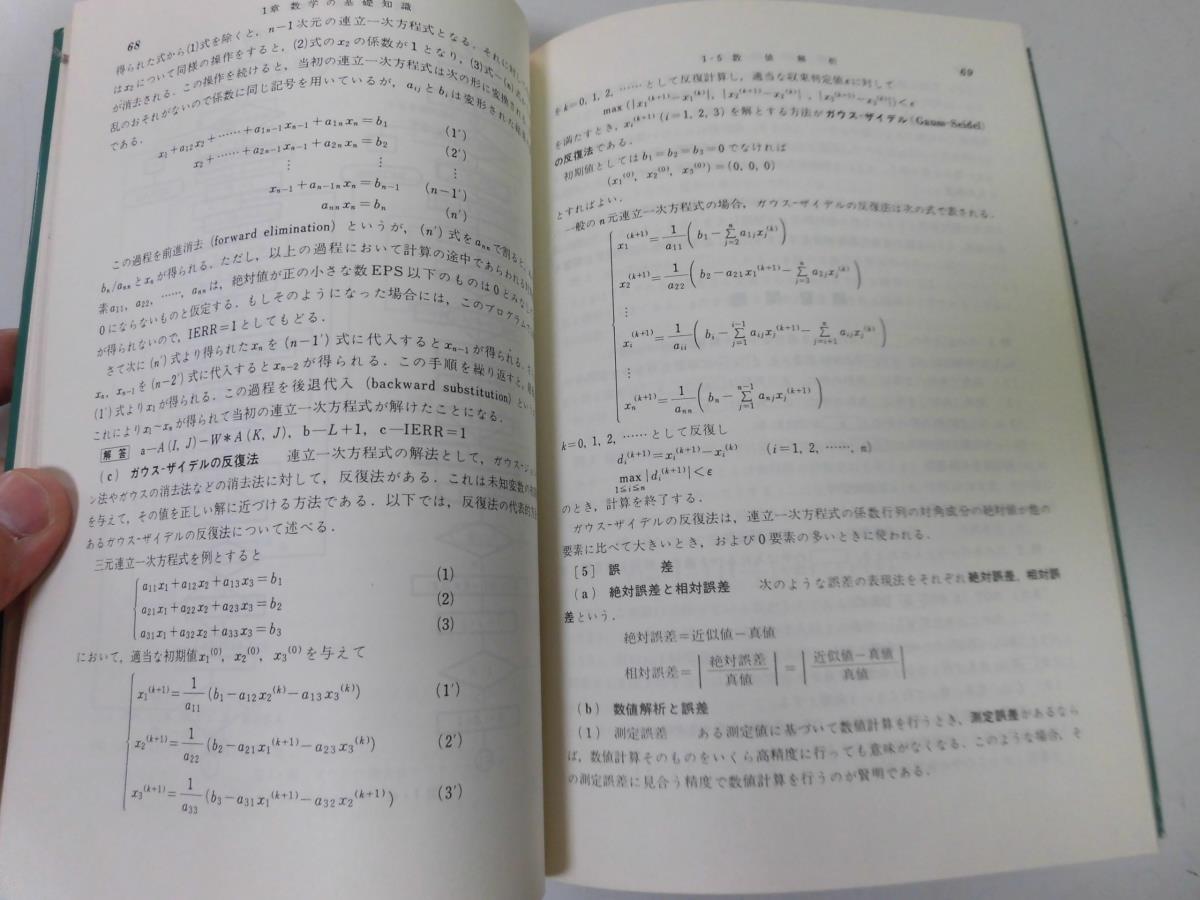 68
1章 数学の基礎知識
得られた式から(1)式を除くと, n−1次元の連立一次方程式となる. それに対して
はx₂について同様の操作をすると, (2)式のx₂の係数が1となり, (3)式~(n)式
が消去される. この操作を続けると, 当初の連立一次方程式は次の形に変換される
乱のおそれがないので係数に同じ記号を用いているが, aᵢⱼとbᵢは変形された
である.
x₁+a₁₂x₂+……+a₁ₙ₋₁xₙ₋₁+a₁ₙxₙ=b₁ (1′)
x₂+……+a₂ₙ₋₁xₙ₋₁+a₂ₙxₙ=b₂ (2′)
⋮ ⋮ ⋮
xₙ₋₁+aₙ₋₁ₙxₙ=bₙ₋₁ (n−1′)
aₙₙxₙ=bₙ (n′)
この過程を前進消去 (forward elimination) というが, (n′) 式をaₙₙで割ると,
bₙ/aₙₙとxₙが得られる. ただし, 以上の過程において計算の途中であらわれる
素a₁₁, a₂₂, ……, aₙₙは, 絶対値が正の小さな数EPS以下のものは0とみなし
0にならないものと仮定する. もしそのようになった場合には, このプログラムで
が得られないので, IERR=1としてもどる.
さて次に (n′) 式より得られたxₙを (n−1′) 式に代入するとxₙ₋₁が得られる.
xₙ, xₙ₋₁を (n−2′) 式に代入するとxₙ₋₂が得られる. この手順を繰り返すと,
(1′) 式よりx₁が得られる. この過程を後退代入 (backward substitution) という
これによりx₁~xₙが得られて当初の連立一次方程式が解けたことになる.
解答 a—A(I, J)−W*A(K, J), b—L+1, c—IERR=1
(c) ガウス-ザイデルの反復法 連立一次方程式の解法として, ガウス-ジョ
ン法やガウスの消去法などの消去法に対して, 反復法がある. これは未知変数の
を与えて, その値を正しい解に近づける方法である. 以下では, 反復法の代表的
あるガウス-ザイデルの反復法について述べる.
三元連立一次方程式を例とすると
a₁₁x₁+a₁₂x₂+a₁₃x₃=b₁ (1)
a₂₁x₁+a₂₂x₂+a₂₃x₃=b₂ (2)
a₃₁x₁+a₃₂x₂+a₃₃x₃=b₃ (3)
において, 適当な初期値x₁⁽⁰⁾, x₂⁽⁰⁾, x₃⁽⁰⁾を与えて
x₁⁽ᵏ⁺¹⁾=1/a₁₁(b₁−a₁₂x₂⁽ᵏ⁾−a₁₃x₃⁽ᵏ⁾) (1′)
x₂⁽ᵏ⁺¹⁾=1/a₂₂(b₂−a₂₁x₁⁽ᵏ⁺¹⁾−a₂₃x₃⁽ᵏ⁾) (2′)
x₃⁽ᵏ⁺¹⁾=1/a₃₃(b₃−a₃₁x₁⁽ᵏ⁺¹⁾−a₃₂x₂⁽ᵏ⁺¹⁾) (3′)
1·5 数値解析
69
をk=0, 1, 2, ……として反復計算し, 適当な収束判定値εに対して
max(|x₁⁽ᵏ⁺¹⁾−x₁⁽ᵏ⁾|, |x₂⁽ᵏ⁺¹⁾−x₂⁽ᵏ⁾|, |x₃⁽ᵏ⁺¹⁾−x₃⁽ᵏ⁾|)<ε
を満たすとき, xᵢ⁽ᵏ⁺¹⁾ (i=1, 2, 3) を解とする方法がガウス-ザイデル (Gauss-Seidel)
の反復法である.
初期値としてはb₁=b₂=b₃=0でなければ
(x₁⁽⁰⁾, x₂⁽⁰⁾, x₃⁽⁰⁾)=(0, 0, 0)
とすればよい.
一般のn元連立一次方程式の場合, ガウス-ザイデルの反復法は次の式で表される.
x₁⁽ᵏ⁺¹⁾=1/a₁₁(b₁−Σⁿⱼ₌₂a₁ⱼxⱼ⁽ᵏ⁾)
x₂⁽ᵏ⁺¹⁾=1/a₂₂(b₂−a₂₁x₁⁽ᵏ⁺¹⁾−Σⁿⱼ₌₃a₂ⱼxⱼ⁽ᵏ⁾)
⋮
xᵢ⁽ᵏ⁺¹⁾=1/aᵢᵢ(bᵢ−Σⁱ⁻¹ⱼ₌₁aᵢⱼxⱼ⁽ᵏ⁺¹⁾−Σⁿⱼ₌ᵢ₊₁aᵢⱼxⱼ⁽ᵏ⁾)
⋮
xₙ⁽ᵏ⁺¹⁾=1/aₙₙ(bₙ−Σⁿ⁻¹ⱼ₌₁aₙⱼxⱼ⁽ᵏ⁺¹⁾)
k=0, 1, 2, ……として反復し
dᵢ⁽ᵏ⁺¹⁾=xᵢ⁽ᵏ⁺¹⁾−xᵢ⁽ᵏ⁾ (i=1, 2, ……, n)
max|dᵢ⁽ᵏ⁺¹⁾|<ε
1≤i≤n
のとき, 計算を終了する.
ガウス-ザイデルの反復法は, 連立一次方程式の係数行列の対角成分の絶対値が他の
要素に比べて大きいとき, および0要素の多いときに使われる.
[5] 誤差
(a) 絶対誤差と相対誤差 次のような誤差の表現法をそれぞれ絶対誤差, 相対誤
差という.
絶対誤差=近似値−真値
相対誤差=|絶対誤差/真値|=|近似値−真値/真値|
(b) 数値解析と誤差
(1) 測定誤差 ある測定値に基づいて数値計算を行うとき, 測定誤差があるなら
ば, 数値計算そのものをいくら高精度に行っても意味がなくなる. このような場合, そ
の測定誤差に見合う精度で数値計算を行うのが賢明である.